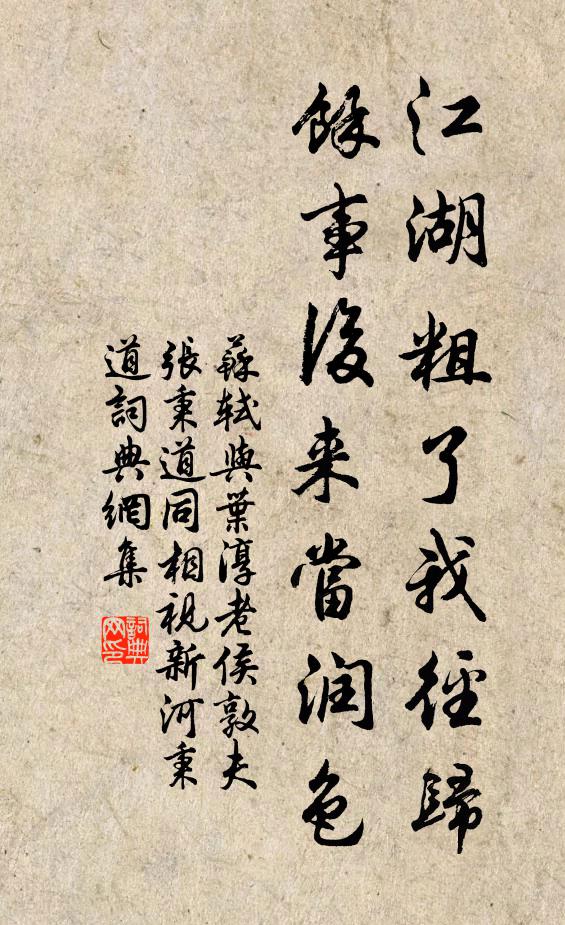 江湖粗了我徑歸
餘事後来當润色
蘇軾與葉淳老侯敦夫
張秉道同相視新河秉
道詞典網集
詞典
网印